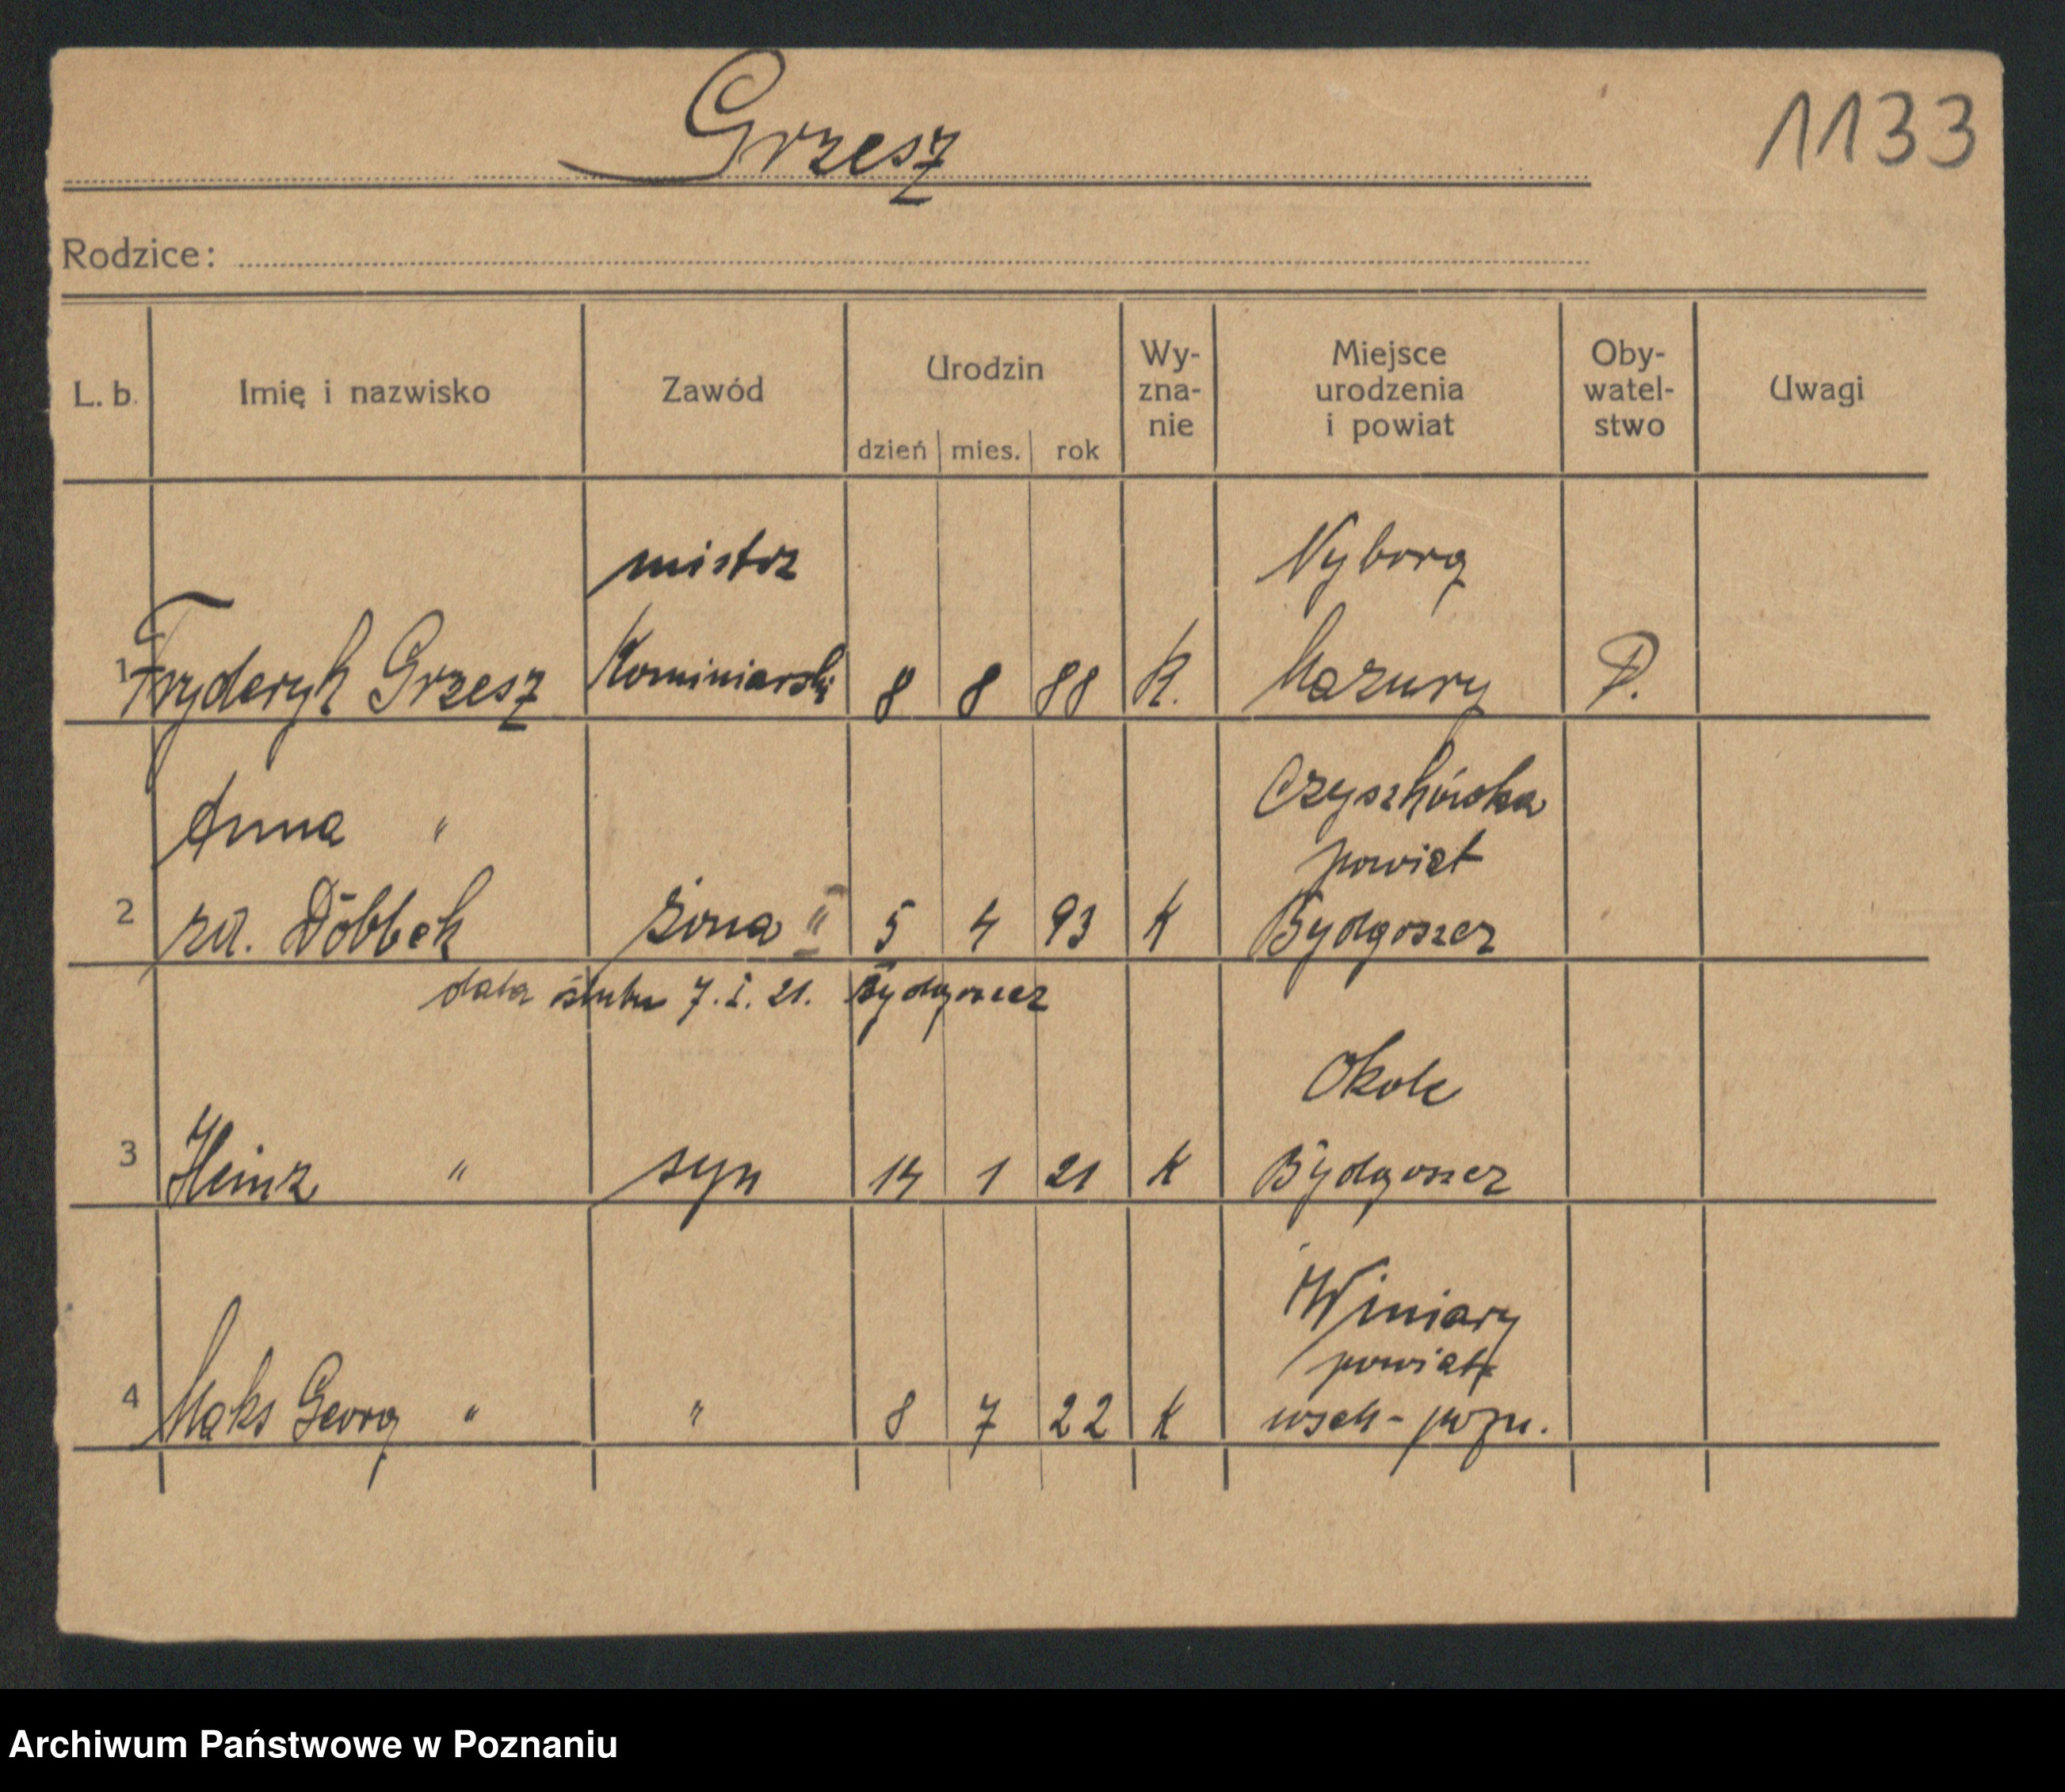 Grzesz
1133
Rodzice:
L. b. Imię i nazwisko Zawód Urodzin dzień mies. rok Wy-zna-nie Miejsce urodzenia i powiat Oby-watel-stwo Uwagi
mistrz Nyborg
1 Fryderyk Grzesz Kominiarski 8 8 88 K. Mazury P.
Anna " Czyszkówka
powiat
2 rd. Döbbek żona " 5 4 93 K Bydgoszcz
data ślubu 7. I. 21. Bydgoszcz
Okole
3 Heinz " syn 14 1 21 K Bydgoszcz
Winiary
powiat
4 Maks Georg " " 8 7 22 K wsch-pozn.
Archiwum Państwowe w Poznaniu